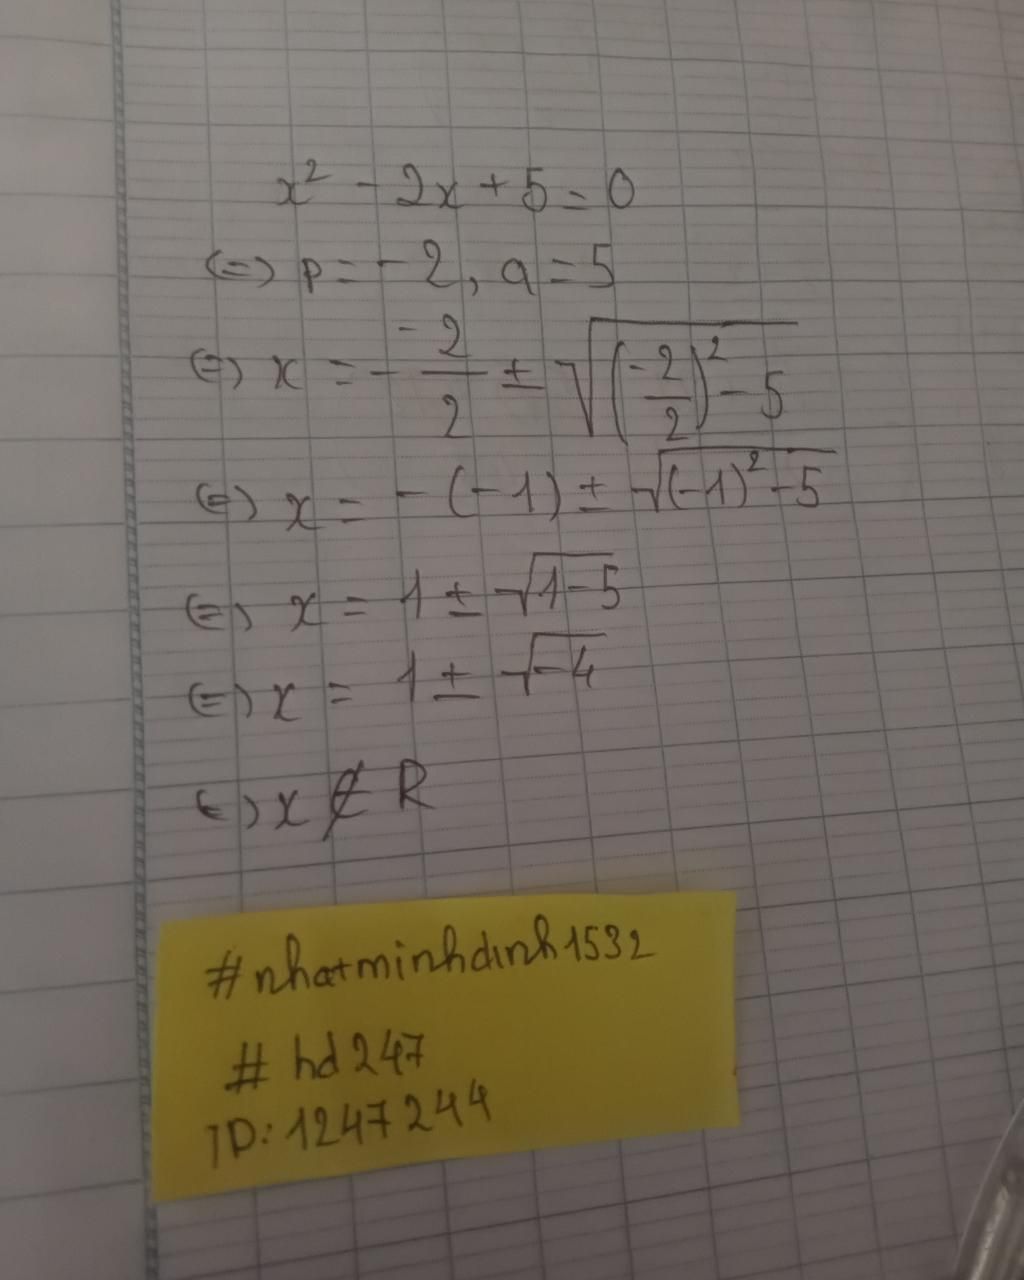 x² - 2x + 5 = 0
(=) p = -2, q = 5
(=) x = - \frac{-2}{2} ± \sqrt{(\frac{-2}{2})² - 5}
(=) x = - (-1) ± \sqrt{(-1)² - 5}
(=) x = 1 ± \sqrt{1-5}
(=) x = 1 ± \sqrt{-4}
(=) x ∉ R
#nhatminhdinh1532
# hd247
ID: 1247244